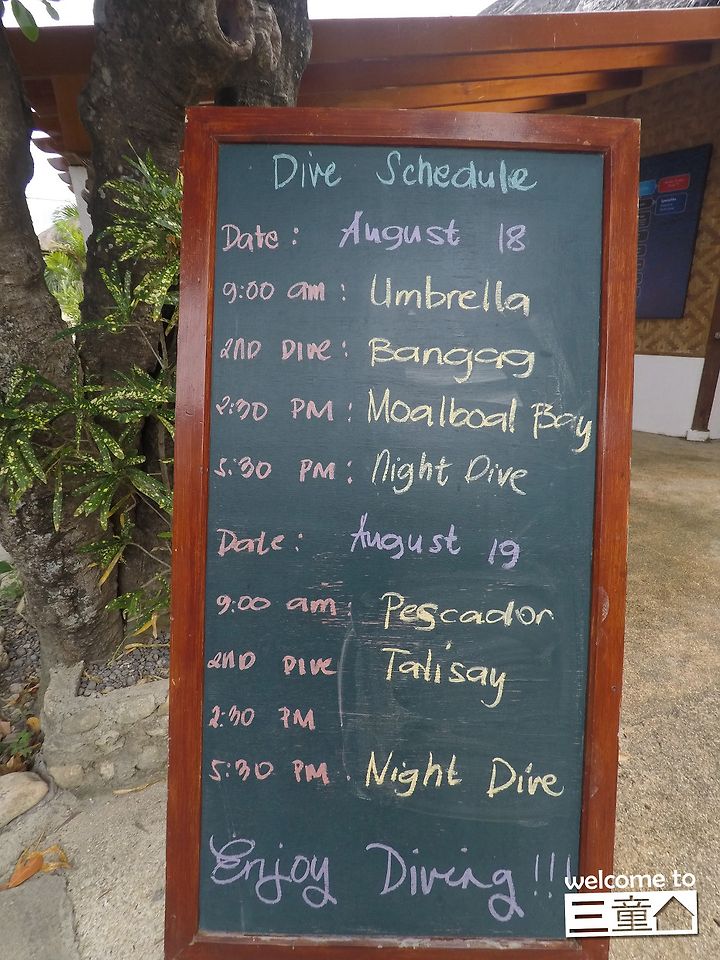 Dive Schedule
Date: August 18
9:00 am: Umbrella
2ND DIVE: Bangag
2:30 PM: Moalboal Bay
5:30 PM: Night Dive
Date: August 19
9:00 am: Pescador
2ND DIVE Talisay
2:30 PM
5:30 PM: Night Dive
Enjoy Diving!!!
welcome to
三童